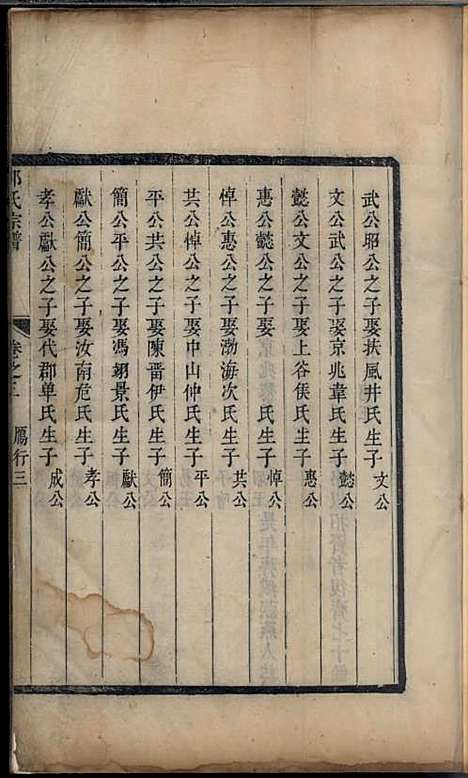 武公昭公之子娶扶風井氏生子文公
文公武公之子娶京兆韋氏生子懿公
懿公文公之子娶上谷侯氏生子惠公
惠公懿公之子娶 氏生子悼公
悼公惠公之子娶渤海次氏生子共公
共公悼公之子娶中山仲氏生子平公
平公共公之子娶陳畱伊氏生子簡公
簡公平公之子娶馮翊景氏生子獻公
獻公簡公之子娶汝南危氏生子孝公
孝公獻公之子娶代郡单氏生子成公
氏宗譜 卷之三 鴈行三